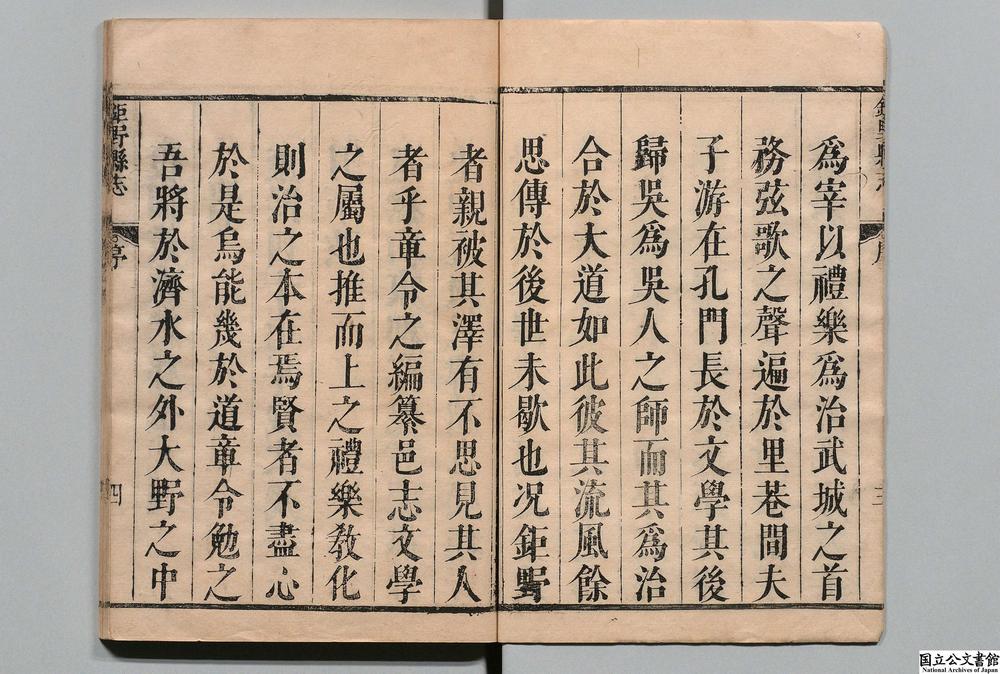 為宰以禮樂為治武城之首
務弦歌之聲遍於里巷間夫
子游在孔門長於文學其後
歸吳為吳人之師而其為治
合於大道如此彼其流風餘
思傳於後世未歇也况鉅野
者親被其澤有不思見其人
者乎章令之編纂邑志文學
之屬也推而上之禮樂教化
則治之本在焉賢者不盡心
於是烏能幾於道章令勉之
吾將於濟水之外大野之中
鉅野縣志
序
四
国立公文書館
National Archives of Japan